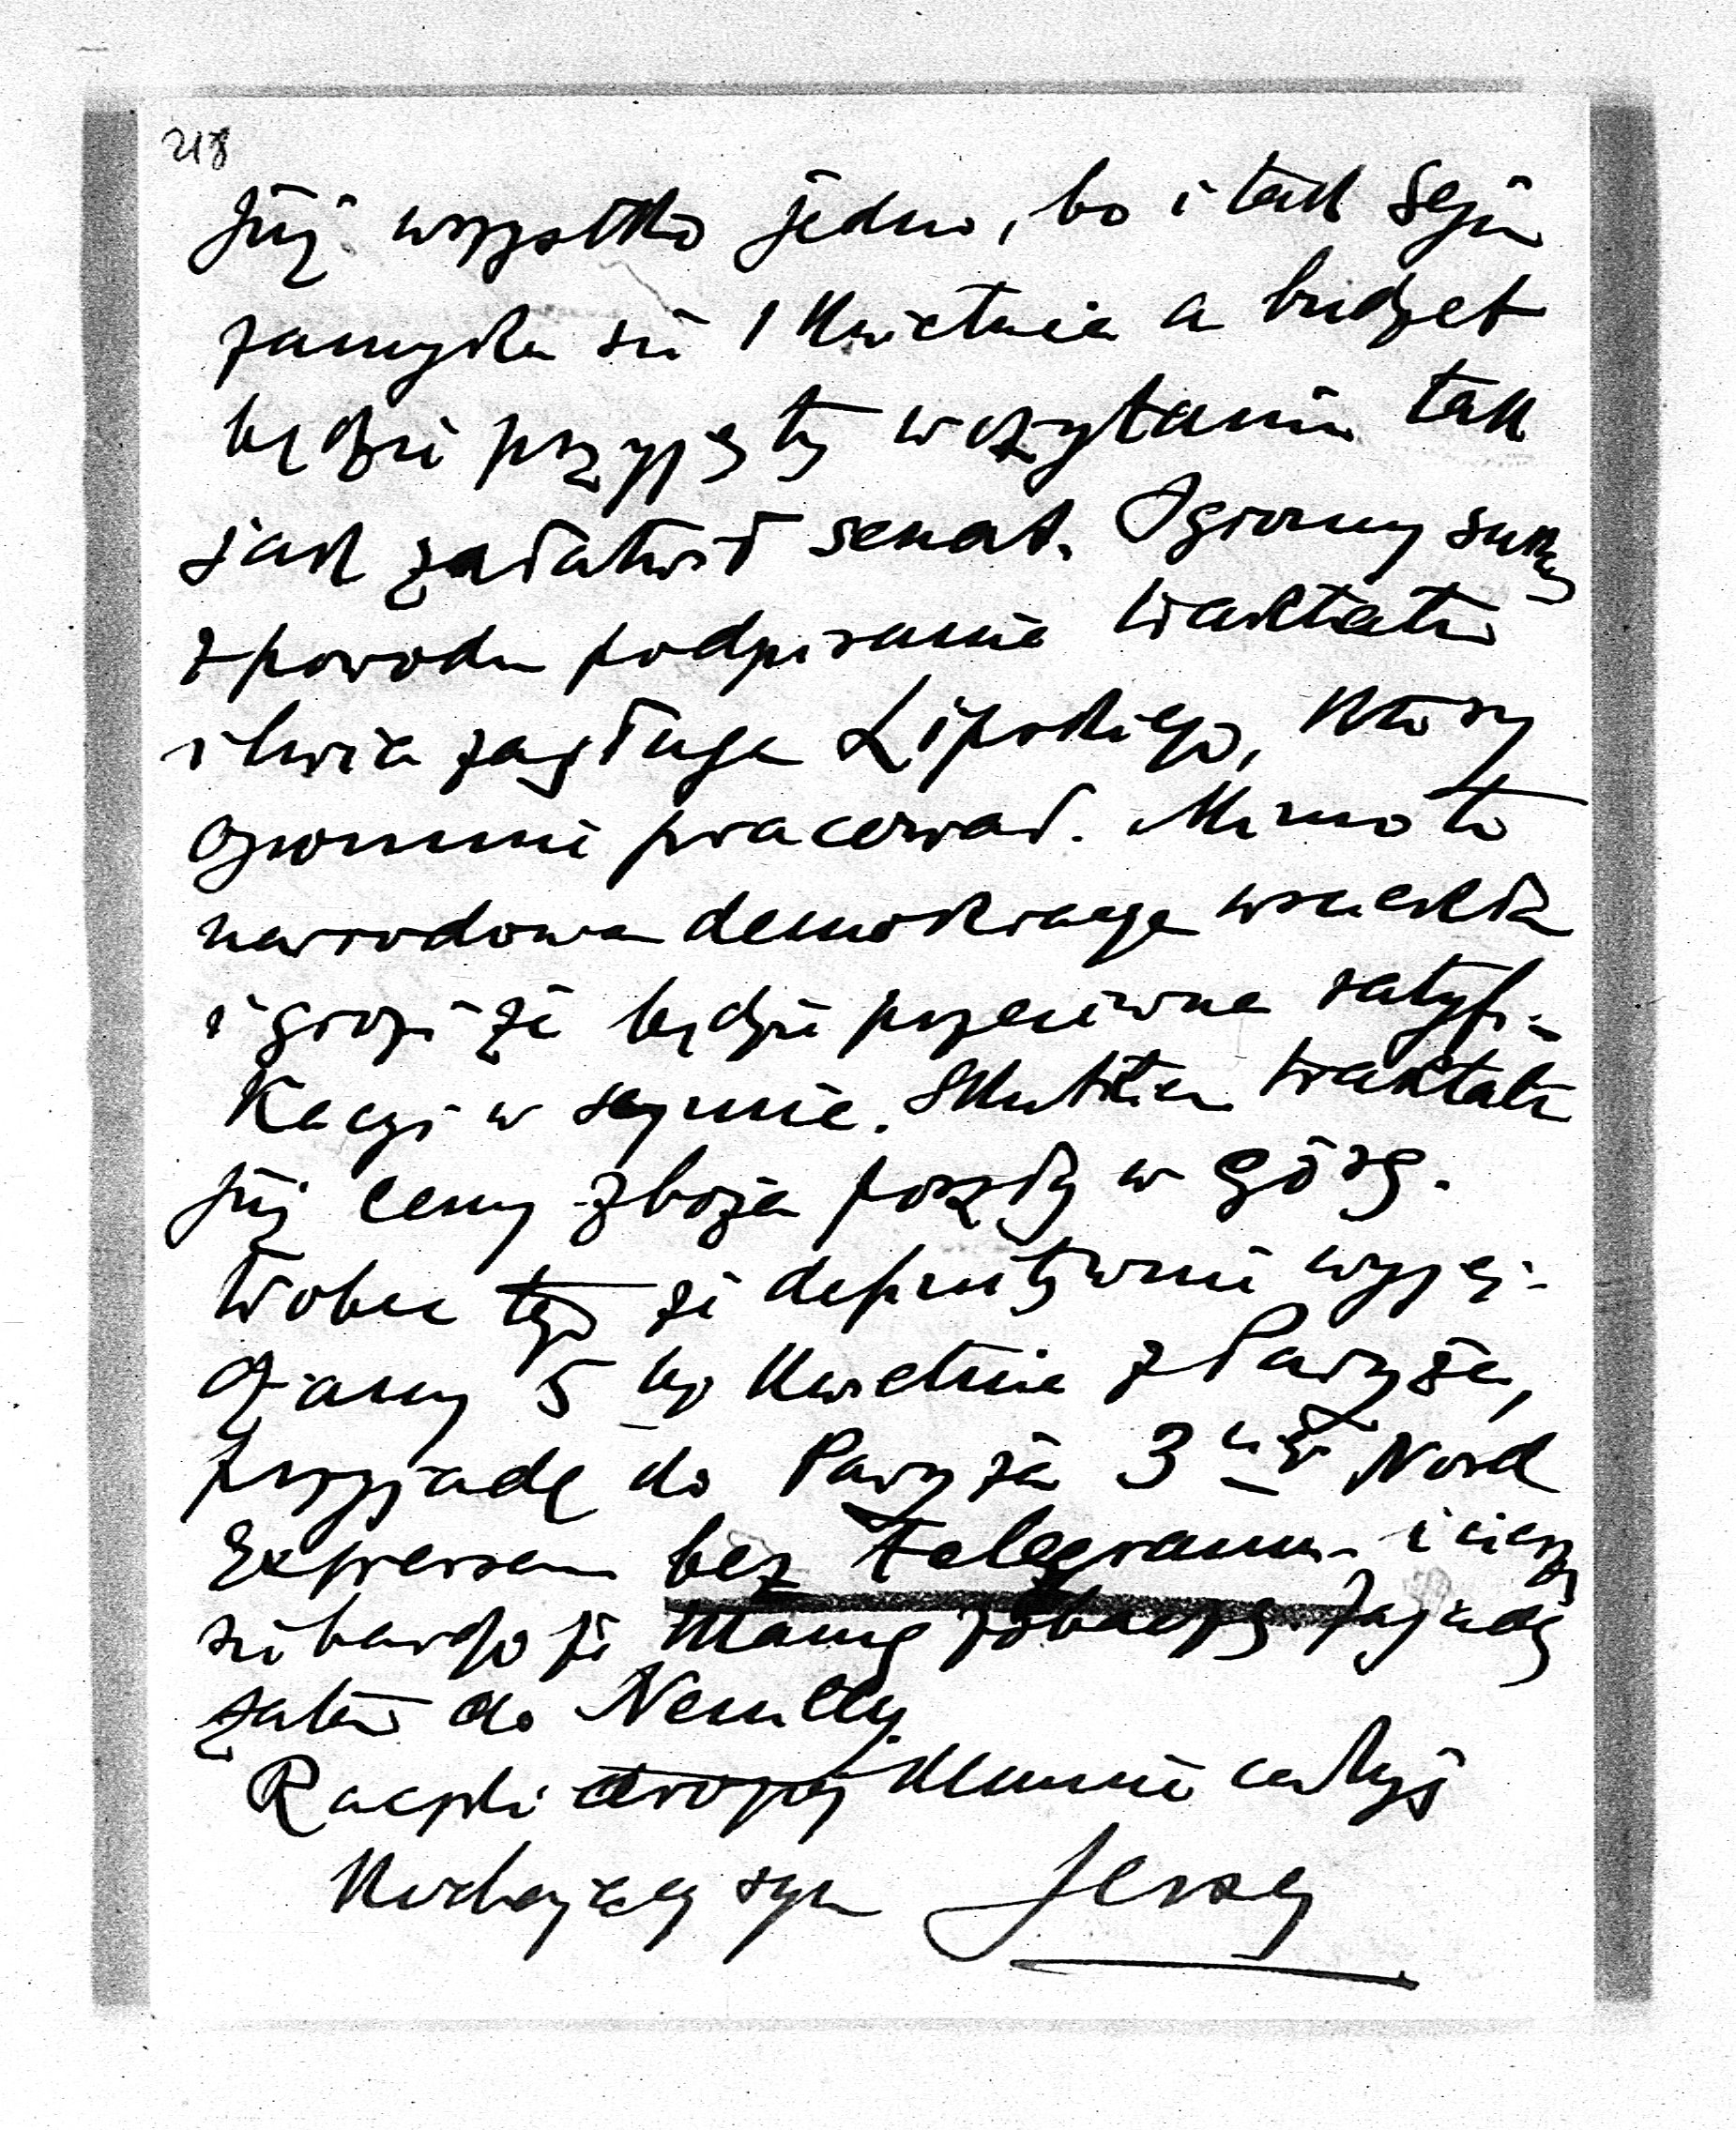 218
już wszystko jedno, bo i tak Sejm
zamyka się 1 Kwietnia a budżet
będzie przyjęty w czytaniu tak
jak załatwił senat. Ogromny sukces
z powodu podpisania traktatu
i lwia zasługa Lipskiego, który
ogromnie pracował. Mimo to
narodowa demokracya wściekła
i grozi że będzie przeciwna ratyfi-
kacyi w sejmie. Skutkiem traktatu
już ceny zboża poszły w górę.
Wobec tego że definitywnie wyjeż-
dżamy 5 go Kwietnia z Paryża,
przyjadę do Paryża 3 Nord
Expressem bez telegramu i cieszę
się bardzo że Mamę zobaczę. Zajadę
zatem do Neuilly.
Rączki drogiej Mamie całuję
Kochający syn Jerzy